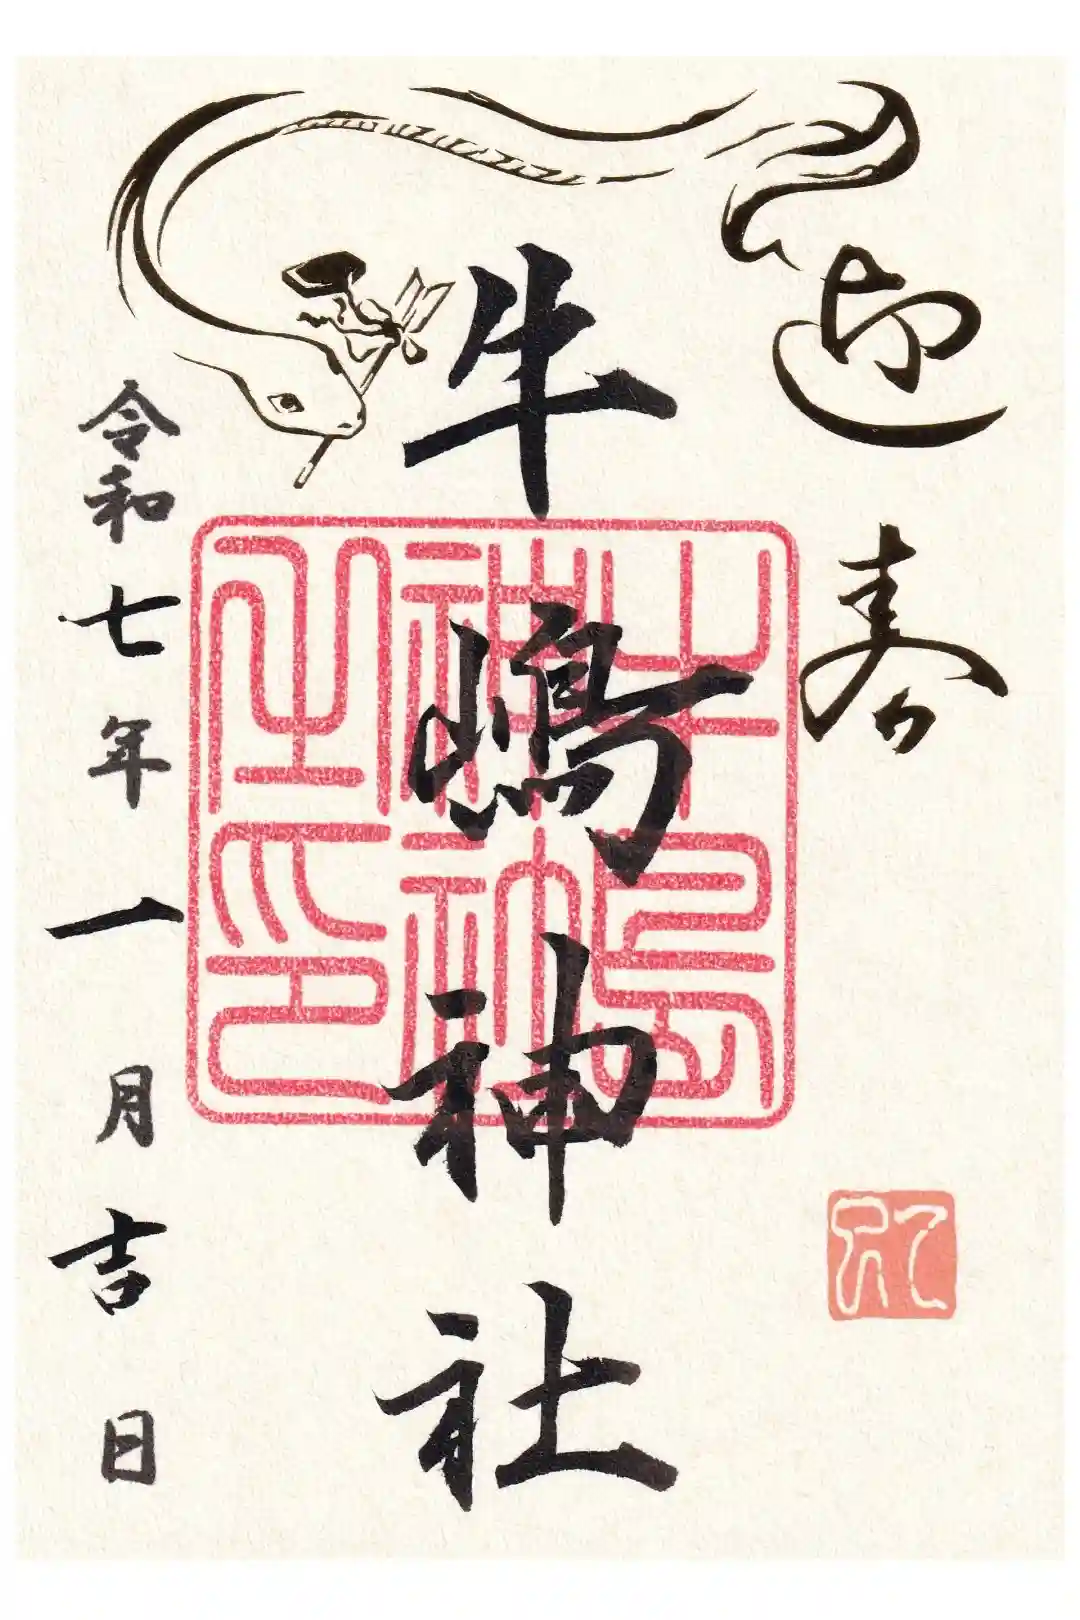 迎春
牛嶋神社
令和七年一月吉日
牛島
神社
之印